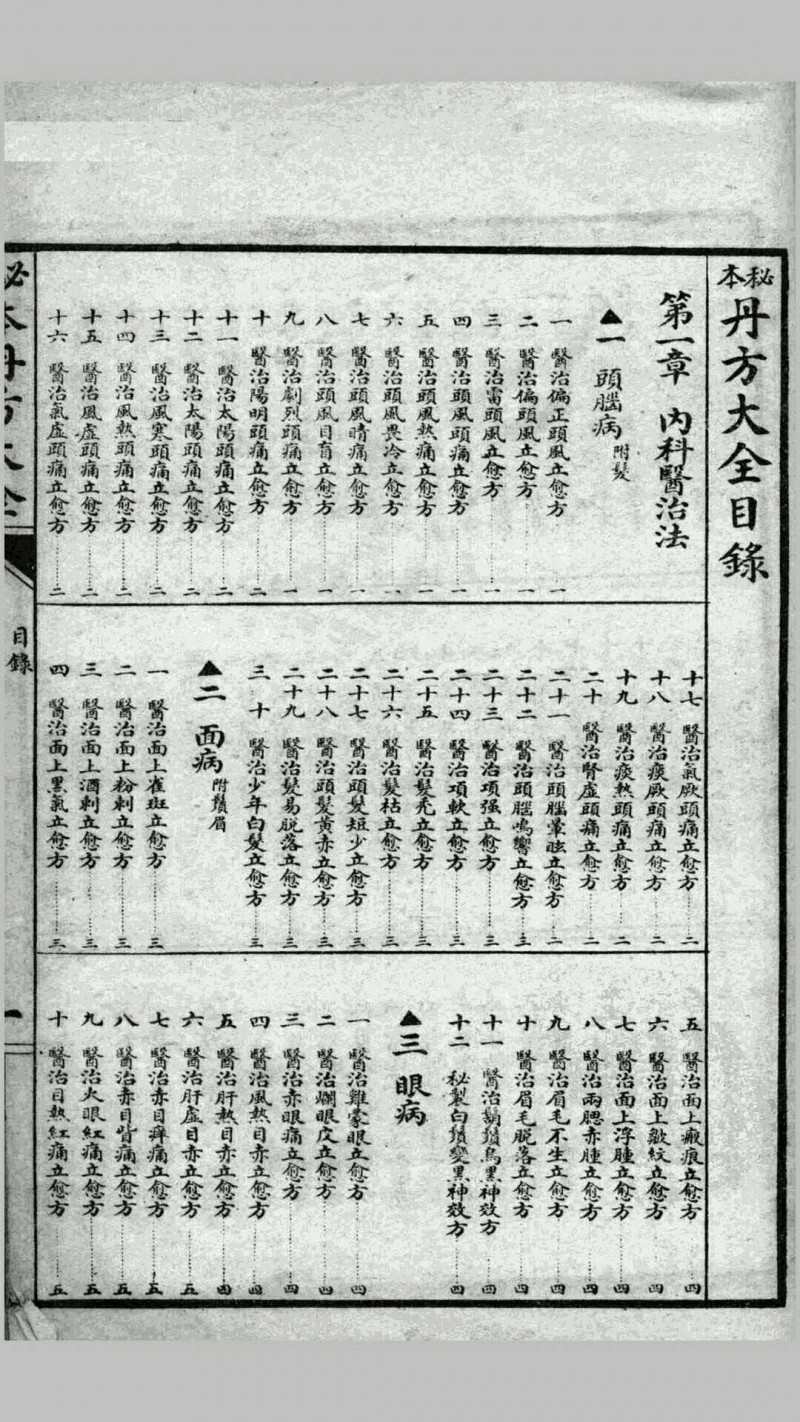 秘本丹方大全目錄
第一章 內科醫治法
▲一 頭腦病 附髮
一 醫治偏正頭風立愈方……一
二 醫治偏頭風立愈方……一
三 醫治雷頭風立愈方……一
四 醫治頭風頭痛立愈方……一
五 醫治頭風熱痛立愈方……一
六 醫治頭風畏冷立愈方……一
七 醫治頭風晴痛立愈方……一
八 醫治頭風目盲立愈方……一
九 醫治劇烈頭痛立愈方……一
十 醫治陽明頭痛立愈方……二
十一 醫治太陽頭痛立愈方……二
十二 醫治太陽頭痛立愈方……二
十三 醫治風寒頭痛立愈方……二
十四 醫治風熱頭痛立愈方……二
十五 醫治風虛頭痛立愈方……二
十六 醫治氣虛頭痛立愈方……二
十七 醫治氣厥頭痛立愈方……二
十八 醫治痰厥頭痛立愈方……二
十九 醫治痰熱頭痛立愈方……二
二十 醫治腎虛頭痛立愈方……二
二十一 醫治頭腦暈眩立愈方……二
二十二 醫治頭腦鳴響立愈方……三
二十三 醫治項强立愈方……三
二十四 醫治項軟立愈方……三
二十五 醫治髮禿立愈方……三
二十六 醫治髮枯立愈方……三
二十七 醫治頭髮短少立愈方……三
二十八 醫治頭髮黃赤立愈方……三
二十九 醫治髮易脫落立愈方……三
三十 醫治少年白髮立愈方……三
▲二 面病 附鬚眉
一 醫治面上雀斑立愈方……三
二 醫治面上粉刺立愈方……三
三 醫治面上酒刺立愈方……三
四 醫治面上黑氣立愈方……三
五 醫治面上瘢痕立愈方……四
六 醫治面上皺紋立愈方……四
七 醫治面上浮腫立愈方……四
八 醫治兩腮赤腫立愈方……四
九 醫治眉毛不生立愈方……四
十 醫治眉毛脫落立愈方……四
十一 醫治鬍鬚烏黑神效方……四
十二 秘製白鬚變黑神效方……四
▲三 眼病
一 醫治雞蒙眼立愈方……四
二 醫治爛眼皮立愈方……四
三 醫治赤眼痛立愈方……四
四 醫治風熱目赤立愈方……四
五 醫治肝熱目赤立愈方……四
六 醫治肝虛目赤立愈方……五
七 醫治赤目癢痛立愈方……五
八 醫治赤目眥痛立愈方……五
九 醫治火眼紅痛立愈方……五
十 醫治目熱紅痛立愈方……五
必本丹方大全
目錄
一